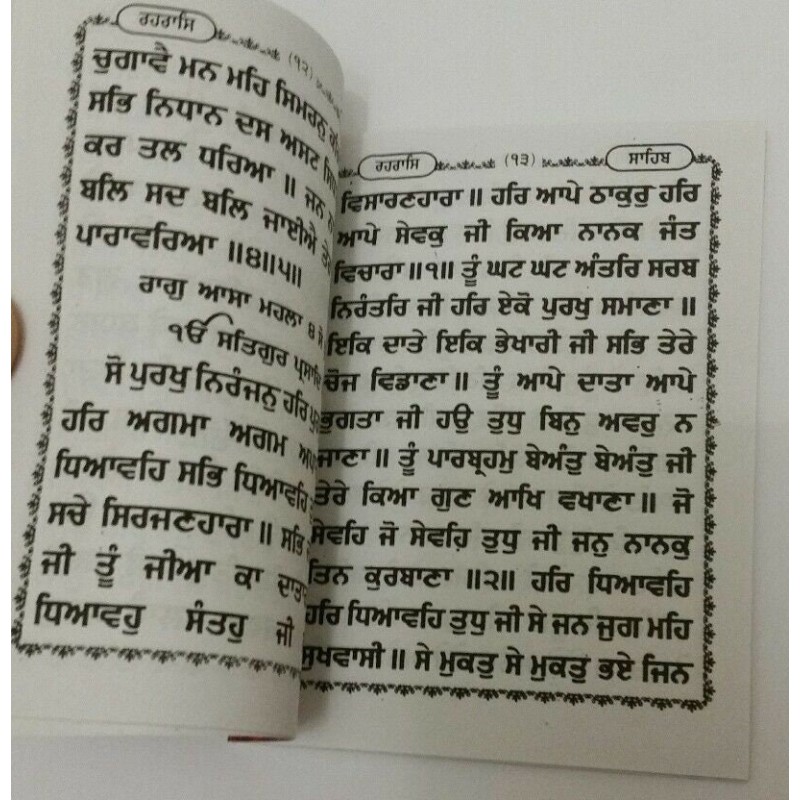 ਰਹਰਾਸਿ
(੧੨)
ਚੁਗਾਵੈ ਮਨ ਮਹਿ ਸਿਮਰਨੁ
ਸਭਿ ਨਿਧਾਨ ਦਸ ਅਸਟ
ਕਰ ਤਲ ਧਰਿਆ ॥ ਜਨ
ਬਲਿ ਸਦ ਬਲਿ ਜਾਈਐ ਤੇਰੇ
ਪਾਰਾਵਰਿਆ ॥੪॥੫॥
ਰਾਗੁ ਆਸਾ ਮਹਲਾ ੪
ੴ ਸਤਿਗੁਰ ਪ੍ਰਸਾਦਿ
ਸੋ ਪੁਰਖੁ ਨਿਰੰਜਨੁ ਹਰਿ
ਹਰਿ ਅਗਮਾ ਅਗਮ
ਧਿਆਵਹਿ ਸਭਿ ਧਿਆਵਹਿ
ਸਚੇ ਸਿਰਜਣਹਾਰਾ ॥ ਸਭਿ
ਜੀ ਤੂੰ ਜੀਆ ਕਾ ਦਾਤਾ
ਧਿਆਵਹੁ ਸੰਤਹੁ ਜੀ
ਰਹਰਾਸਿ (੧੩) ਸਾਹਿਬ
ਵਿਸਾਰਣਹਾਰਾ ॥ ਹਰਿ ਆਪੇ ਠਾਕੁਰੁ ਹਰਿ
ਆਪੇ ਸੇਵਕੁ ਜੀ ਕਿਆ ਨਾਨਕ ਜੰਤ
ਵਿਚਾਰਾ ॥੧॥ ਤੂੰ ਘਟ ਘਟ ਅੰਤਰਿ ਸਰਬ
ਨਿਰੰਤਰਿ ਜੀ ਹਰਿ ਏਕੋ ਪੁਰਖੁ ਸਮਾਣਾ ॥
ਇਕਿ ਦਾਤੇ ਇਕਿ ਭੇਖਾਰੀ ਜੀ ਸਭਿ ਤੇਰੇ
ਚੋਜ ਵਿਡਾਣਾ ॥ ਤੂੰ ਆਪੇ ਦਾਤਾ ਆਪੇ
ਭੁਗਤਾ ਜੀ ਹਉ ਤੁਧੁ ਬਿਨੁ ਅਵਰੁ ਨ
ਜਾਣਾ ॥ ਤੂੰ ਪਾਰਬ੍ਰਹਮੁ ਬੇਅੰਤੁ ਬੇਅੰਤੁ ਜੀ
ਤੇਰੇ ਕਿਆ ਗੁਣ ਆਖਿ ਵਖਾਣਾ ॥ ਜੋ
ਸੇਵਹਿ ਜੋ ਸੇਵਹਿ ਤੁਧੁ ਜੀ ਜਨੁ ਨਾਨਕੁ
ਤਿਨ ਕੁਰਬਾਣਾ ॥੨॥ ਹਰਿ ਧਿਆਵਹਿ
ਹਰਿ ਧਿਆਵਹਿ ਤੁਧੁ ਜੀ ਸੇ ਜਨ ਜੁਗ ਮਹਿ
ਸੁਖਵਾਸੀ ॥ ਸੇ ਮੁਕਤੁ ਸੇ ਮੁਕਤੁ ਭਏ ਜਿਨ